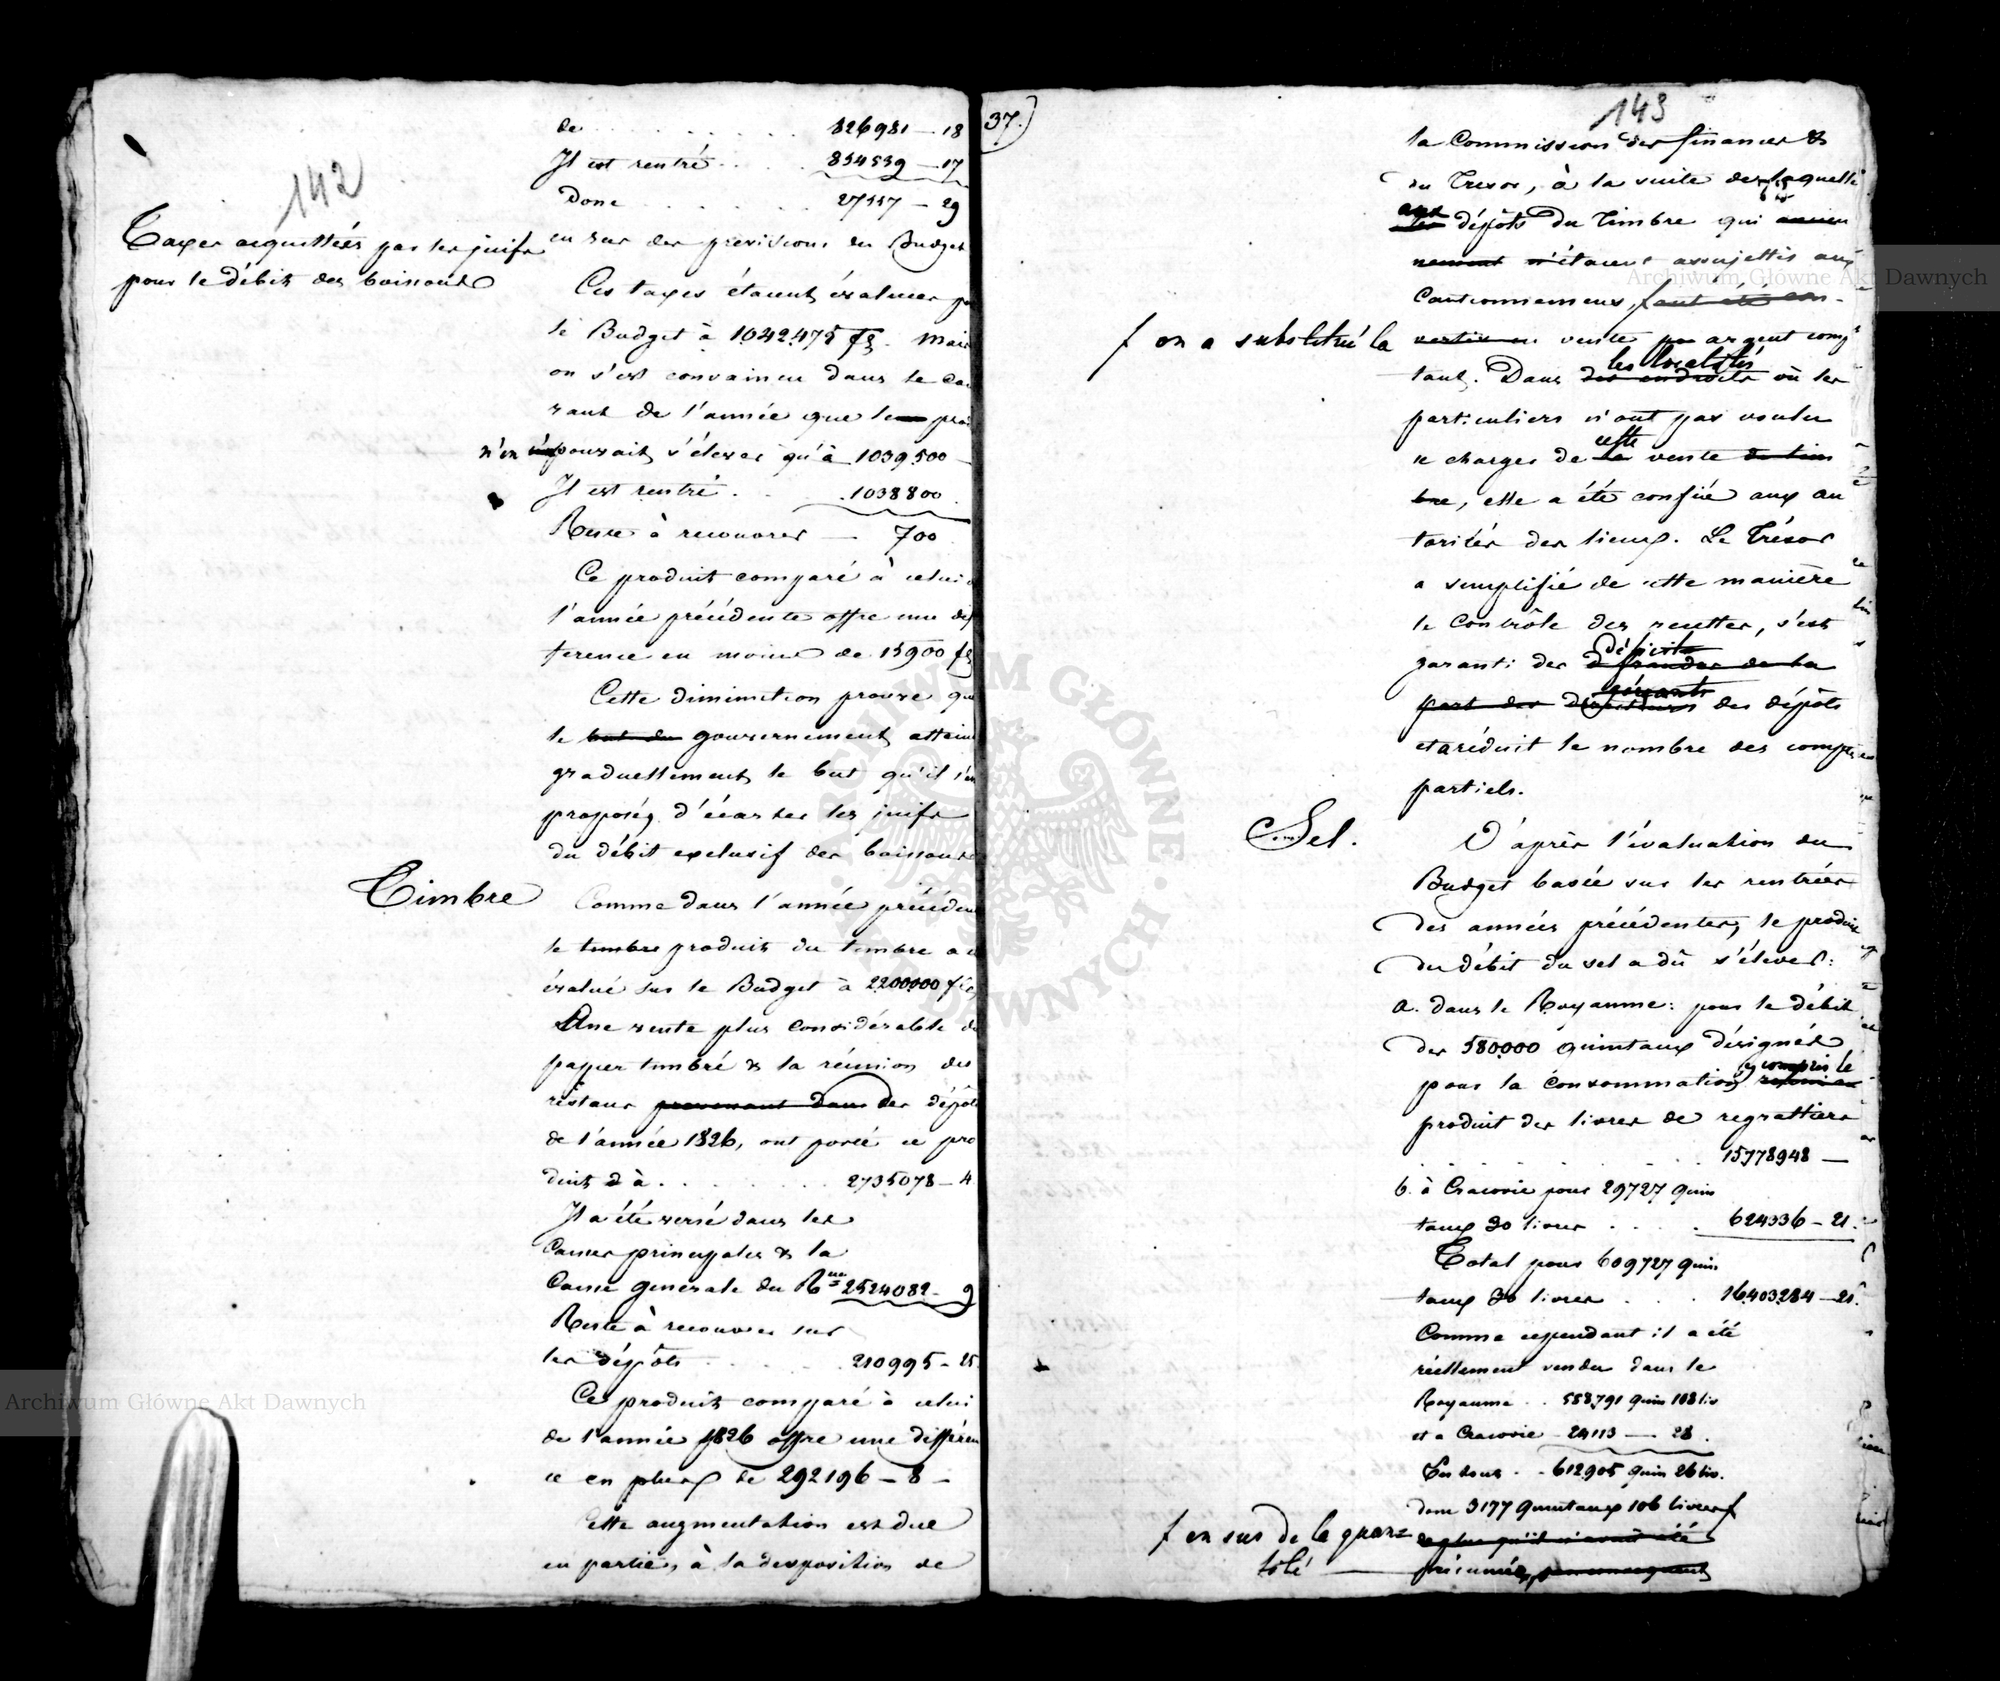 142
de . . . . . . . 826981 — 18
Il est rentré . . . . 854539 — 17
Donc . . . . . . 27557 — 29
en sus des prévisions du Budget
Taxes acquittées par les juifs
pour le débit des boissons
Ces taxes étaient évaluées pa
le Budget à 1042475 fl. Mais
on s'est convaincu dans le cou
rant de l'année que le pro
n'en pouvait s'élever qu'à 1039500 —
Il est rentré . . . 1038800
Reste à recouvrer — 700
Ce produit comparé à celui d
l'année précédente offre une dif
ference en moins de 15900 fl
Cette diminution prouve que
le but du gouvernement attein
graduellement le but qu'il s'est
proposé, d'écarter les juifs
du débit exclusif des boissons
Timbre
Comme dans l'année précéden
le timbre produit du timbre a é
évalué sur le Budget à 2200000 fl
Une vente plus considérable du
papier timbré & la réunion des
restans provenant dans des dépôts
de l'année 1826, ont porté ce pro
duit à . . . . . . 2735078 — 4
Il a été versé dans les
Caisses principales & la
Caisse générale du Rme 2524082 — 9
Reste à recouvrer sur
les dépôts . . . . 210995 — 25
Ce produit comparé à celui
de l'année 1826 offre une différen
ce en plus de 292196 — 8 —
Cette augmentation est due
en partie, à la disposition de
37.
143
la Commission des finances &
du Tresor, à la suite de laquelle
aux les dépôts du Timbre qui ancien
nement n'étaient assujettis aux
Cautionnemens, f ont été con-
f on a substitué la
verties en vente par argent comp
tant. Dans les localités des endroits où les
particuliers n'ont pas voulu
se charger de cette la vente de tim
bre, elle a été confiée aux au
torités des lieux. Le Trésor
a simplifié de cette manière
le contrôle des recettes, s'est
garanti des déficits fraudes de la
part des gérants des dépôts
et a réduit le nombre des comptes
partiels.
Sel.
D'après l'évaluation du
Budget basée sur les rentrées
des années précédentes, le produit
du débit du sel a dû s'élever:
a. dans le Royaume: pour le débit
des 580000 quintaux désignés
pour la Consommation, y compris le
produit des livres de regrattiers
. . . . . . . 15778948 —
b. à Cracovie pour 29727 quin
taux 30 livres . . . . 624336 — 21.
Total pour 609727 quin
taux 30 livres . . . 16,403,284 — 21.
Comme cependant il a été
réellement vendu dans le
Royaume . . 588,791 quin 108 liv
et a Cracovie — 24113 — 28.
En tout . . 612905 quin 26 liv.
donc 3177 quintaux 106 livres f
f en sus de la quan=
tité
de plus qu'il n'avait été
présumée, par conséquent
Archiwum Główne Akt Dawnych
Archiwum Główne Akt Dawnych
ARCHIWUM GŁÓWNE AKT DAWNYCH